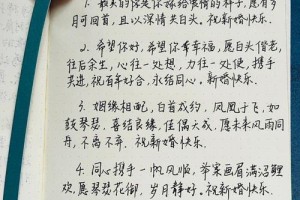 1. 最美的你是你嫁给爱情的样子，愿有岁
月可回首，且以深情共白头。祝新婚快乐。
2. 希望你好，希望你事幸福，愿白头偕老，
往后余生，心往一处想，力往一处使，携手
共进，祝百年好合，永结同心。新婚快乐。
3. 姻缘相配，白首成约，凤凰于飞，如
鼓琴瑟，喜结良缘，佳偶天成，愿未来风雨同
舟，不离不弃。祝新婚快乐。
4. 同心携手一帆风顺，举案画眉满沼鲤
欢，愿琴瑟花御，岁月静好。祝新婚快乐。